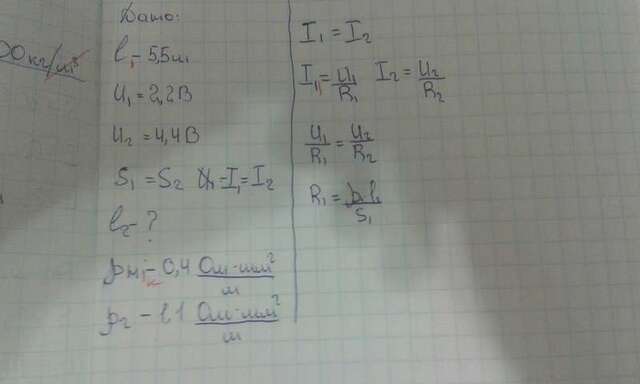 00 кг/м³
Дано:
l₁ - 5,5 м
U₁ = 2,2 В
U₂ = 4,4 В
S₁ = S₂ I₁ = I₂
l₂ - ?
ρ - 0,4 Ом·мм²/м
ρ₂ - 1,1 Ом·мм²/м
I₁ = I₂
I₁ = U₁/R₁ I₂ = U₂/R₂
U₁/R₁ = U₂/R₂
R₁ = ρ l₁/S₁